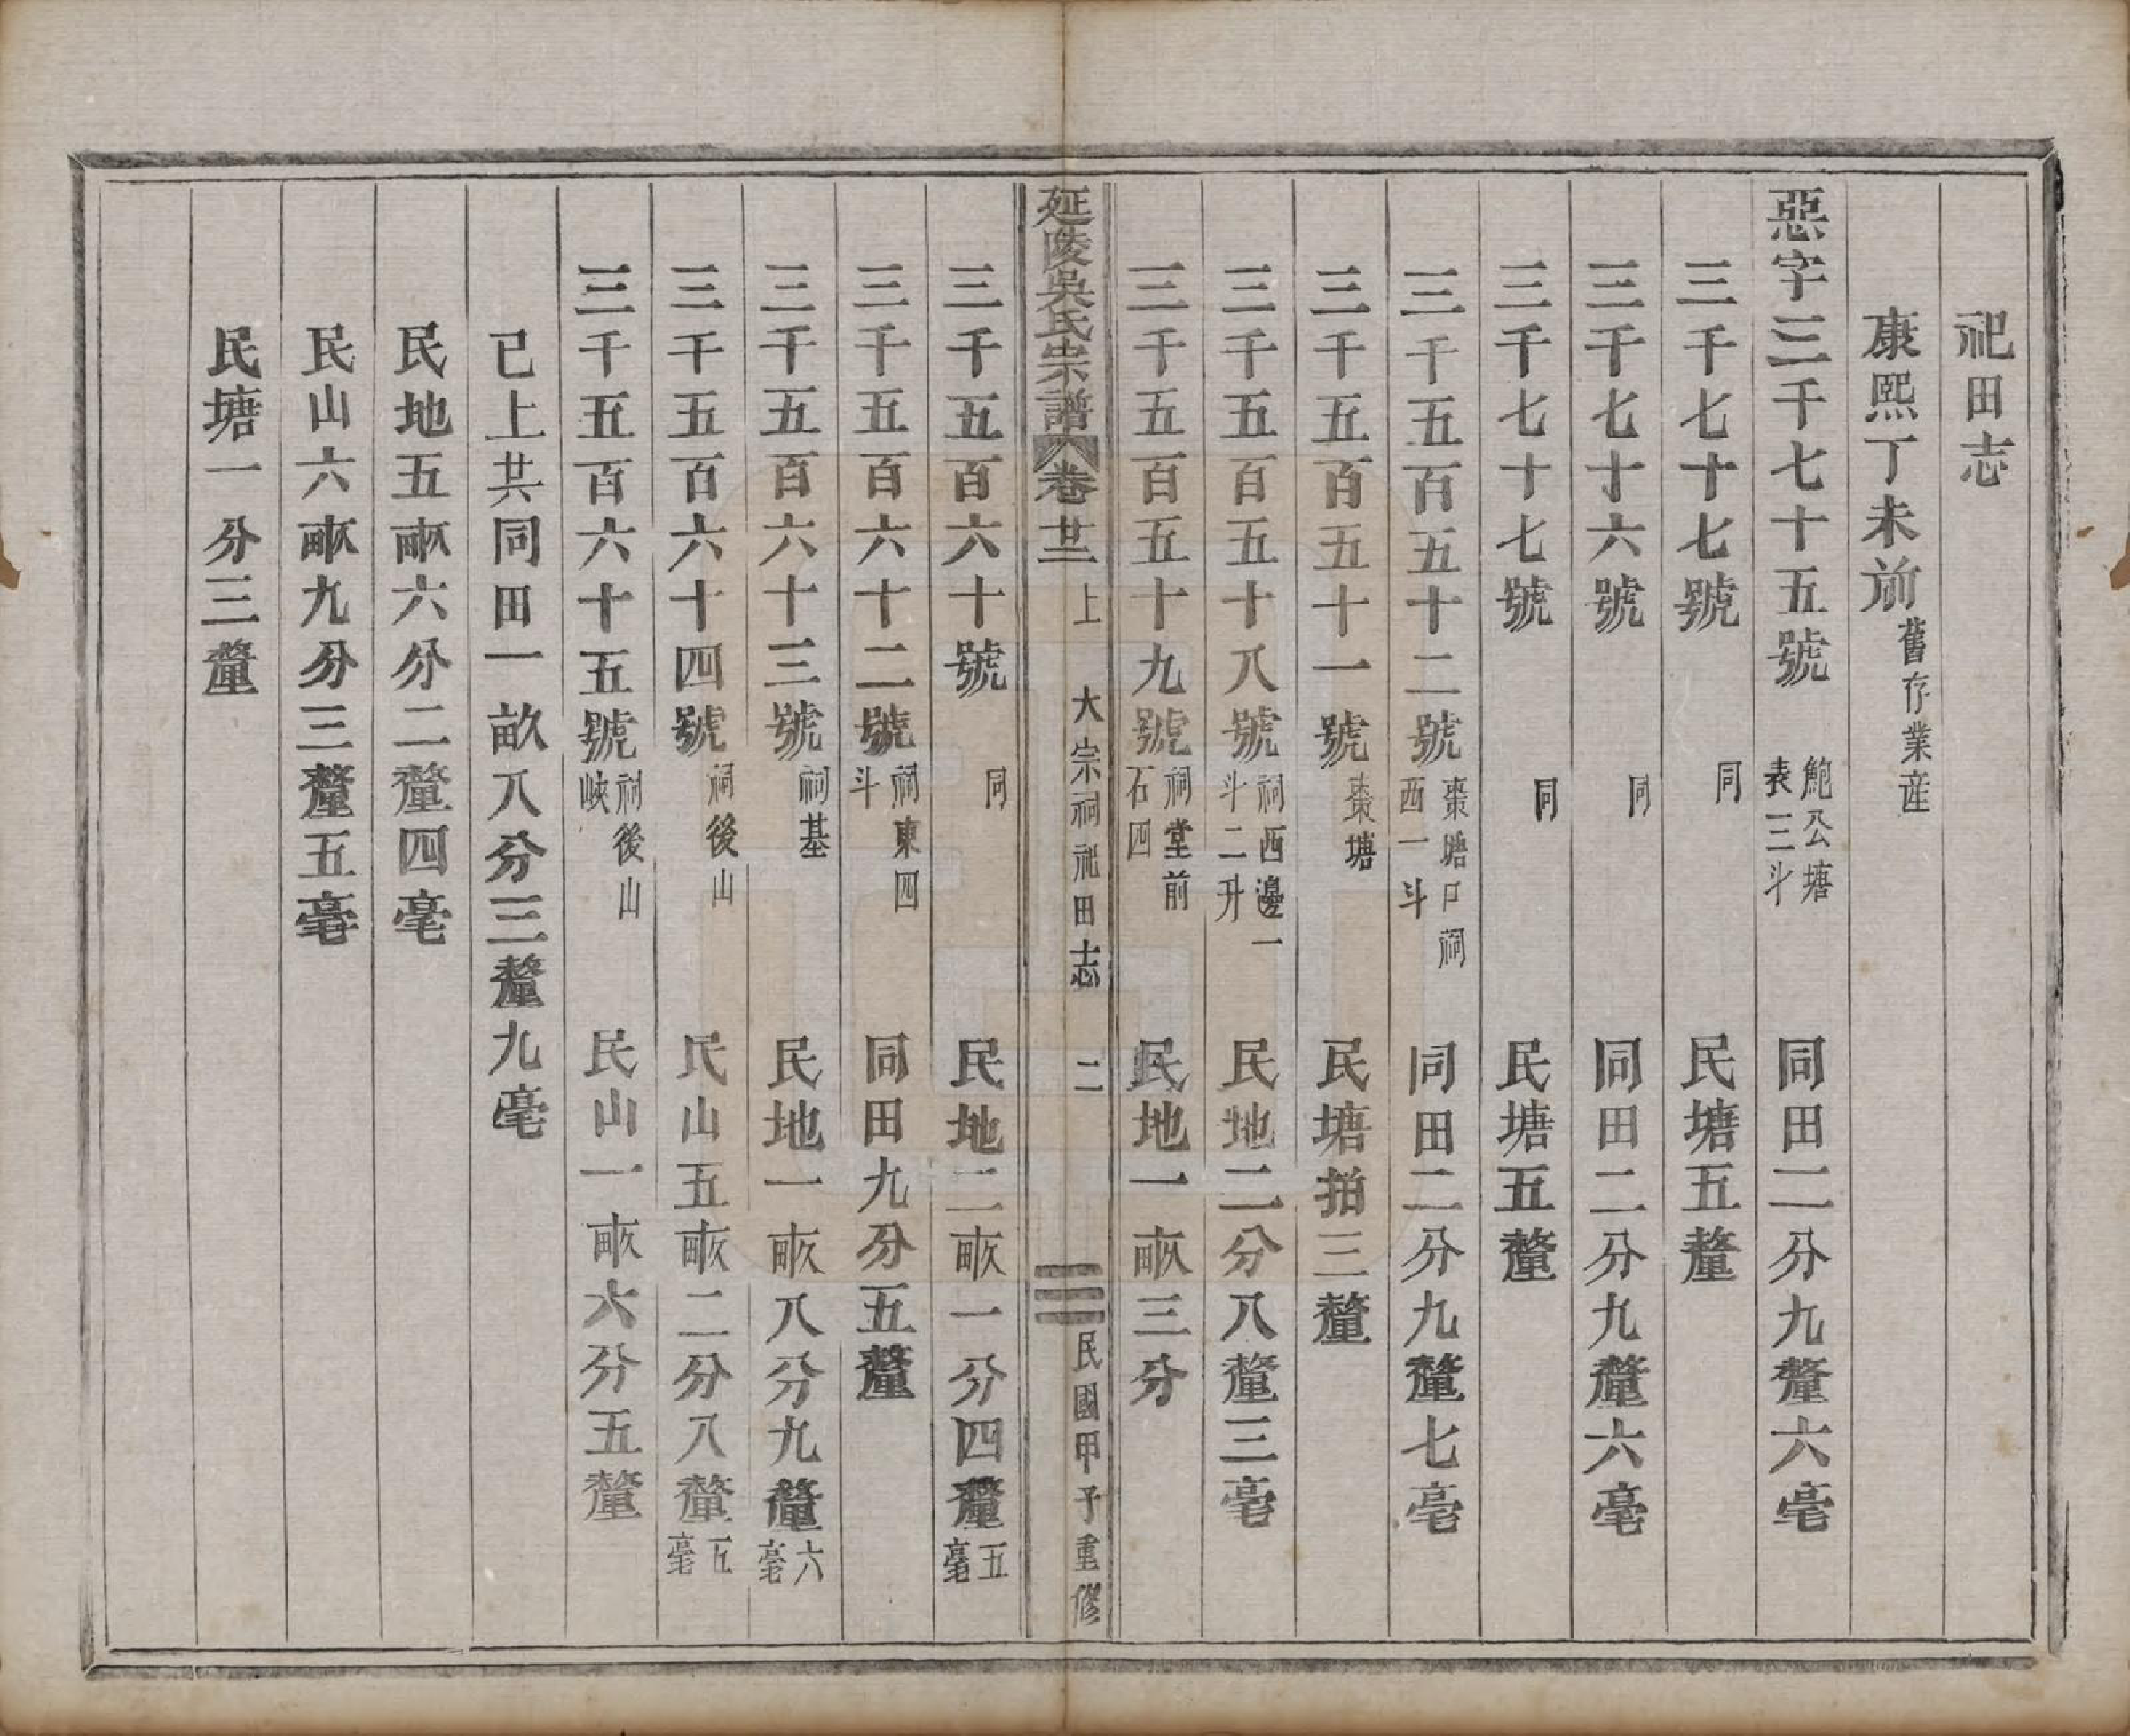 祀田志
康熙丁未前舊存業産
惡字三千七十五號 鮑公塘表三斗 同田二分九釐六毫
三千七十七號 同 民塘五釐
三千七十六號 同 同田二分九釐六毫
三千七十七號 同 民塘五釐
三千五百五十二號 棗塘口祠西一斗 同田二分九釐七毫
三千五百五十一號 棗塘 民塘拍三釐
三千五百五十八號 祠西邊一斗二升 民地二分八釐三毫
三千五百五十九號 祠堂前石四 民地一畝三分
延陵吳氏宗譜 卷廿二上 大宗祠祀田志 二 民國甲子重修
三千五百六十號 同 民地二畝一分四釐五毫
三千五百六十二號 祠東四斗 同田九分五釐
三千五百六十三號 祠基 民地一畝八分九釐六毫
三千五百六十四號 祠後山 民山五畝二分八釐五毫
三千五百六十五號 祠後山峽 民山一畝六分五釐
已上共同田一畝八分三釐九毫
民地五畝六分二釐四毫
民山六畝九分三釐五毫
民塘一分三釐